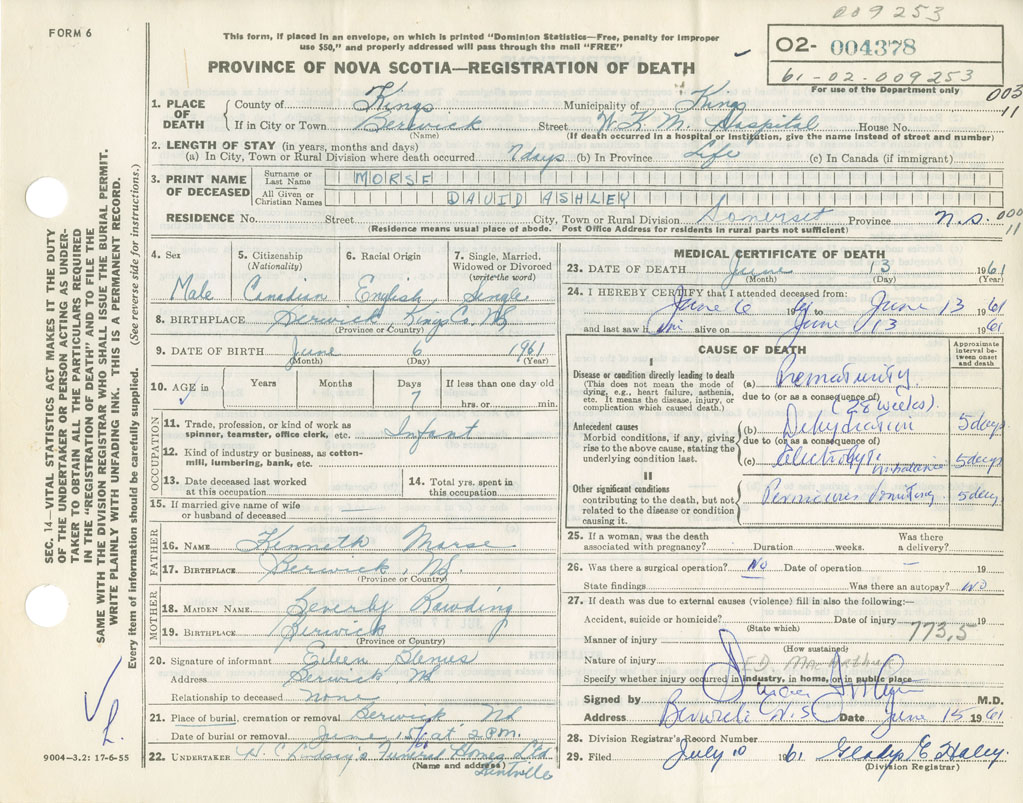 009253
FORM 6
This form, if placed in an envelope, on which is printed "Dominion Statistics—Free, penalty for improper
use $50," and properly addressed will pass through the mail "FREE"
02- 004378
61-02-009253
For use of the Department only
003
11
PROVINCE OF NOVA SCOTIA—REGISTRATION OF DEATH
1. PLACE OF DEATH { County of Kings Municipality of Kings
If in City or Town Berwick Street W.K.M. Hospital House No.
(Name) (If death occurred in a hospital or institution, give the name instead of street and number)
2. LENGTH OF STAY (in years, months and days)
(a) In City, Town or Rural Division where death occurred 7 days (b) In Province Life (c) In Canada (if immigrant)
3. PRINT NAME OF DECEASED { Surname or Last Name MORSE
All Given or Christian Names DAVID ASHLEY
RESIDENCE No. Street City, Town or Rural Division Somerset Province N.S. 000
11
(Residence means usual place of abode. Post Office Address for residents in rural parts not sufficient)
4. Sex 5. Citizenship (Nationality) 6. Racial Origin 7. Single, Married, Widowed or Divorced (write the word)
Male Canadian English Single
8. BIRTHPLACE Berwick Kings Co. NS
(Province or Country)
9. DATE OF BIRTH June 6 1961
(Month) (Day) (Year)
10. AGE in Years Months Days If less than one day old
7 hrs. or min.
OCCUPATION
11. Trade, profession, or kind of work as spinner, teamster, office clerk, etc. Infant
12. Kind of industry or business, as cotton-mill, lumbering, bank, etc.
13. Date deceased last worked at this occupation
14. Total yrs. spent in this occupation
15. If married give name of wife or husband of deceased
FATHER
16. NAME Kenneth Morse
17. BIRTHPLACE Berwick, NS.
(Province or Country)
MOTHER
18. MAIDEN NAME Beverly Rawding
19. BIRTHPLACE Berwick
(Province or Country)
20. Signature of informant Eileen
Address Berwick NS
Relationship to deceased none
21. Place of burial, cremation or removal Berwick NS
Date of burial or removal June 15/61 at 2 P.M.
22. UNDERTAKER H. C. Lindsay's Funeral Homes Ltd
(Name and address) Kentville
MEDICAL CERTIFICATE OF DEATH
23. DATE OF DEATH June 13 1961
(Month) (Day) (Year)
24. I HEREBY CERTIFY that I attended deceased from:
June 6 1961 to June 13 1961
and last saw him alive on June 13 1961
CAUSE OF DEATH
Approximate interval between onset and death
I
Disease or condition directly leading to death (a) Prematurity
(This does not mean the mode of dying, e.g., heart failure, asthenia, etc. It means the disease, injury, or complication which caused death.)
due to (or as a consequence of)
(28 weeks).
Antecedent causes (b) Dehydration 5 days
Morbid conditions, if any, giving rise to the above cause, stating the underlying condition last.
due to (or as a consequence of)
(c) Electrolyte imbalance 5 days
II
Other significant conditions
contributing to the death, but not related to the disease or condition causing it.
vomiting 5 days
25. If a woman, was the death associated with pregnancy? Duration weeks. Was there a delivery?
26. Was there a surgical operation? NO Date of operation — 19
State findings Was there an autopsy? NO
27. If death was due to external causes (violence) fill in also the following:—
Accident, suicide or homicide? Date of injury 19
(State which)
773,5
Manner of injury
(How sustained)
Nature of injury
Specify whether injury occurred in industry, in home, or in public place
Signed by M.D.
Address Berwick N.S. Date June 15 1961
28. Division Registrar's Record Number
29. Filed July 10 1961 Gladys E. Haley.
(Division Registrar)
SEC. 14—VITAL STATISTICS ACT MAKES IT THE DUTY
OF THE UNDERTAKER OR PERSON ACTING AS UNDER-
TAKER TO OBTAIN ALL THE PARTICULARS REQUIRED
IN THE "REGISTRATION OF DEATH" AND TO FILE THE
SAME WITH THE DIVISION REGISTRAR WHO SHALL ISSUE THE BURIAL PERMIT.
WRITE PLAINLY WITH UNFADING INK. THIS IS A PERMANENT RECORD.
Every item of information should be carefully supplied. (See reverse side for instructions.)
9004-3.2: 17-6-55